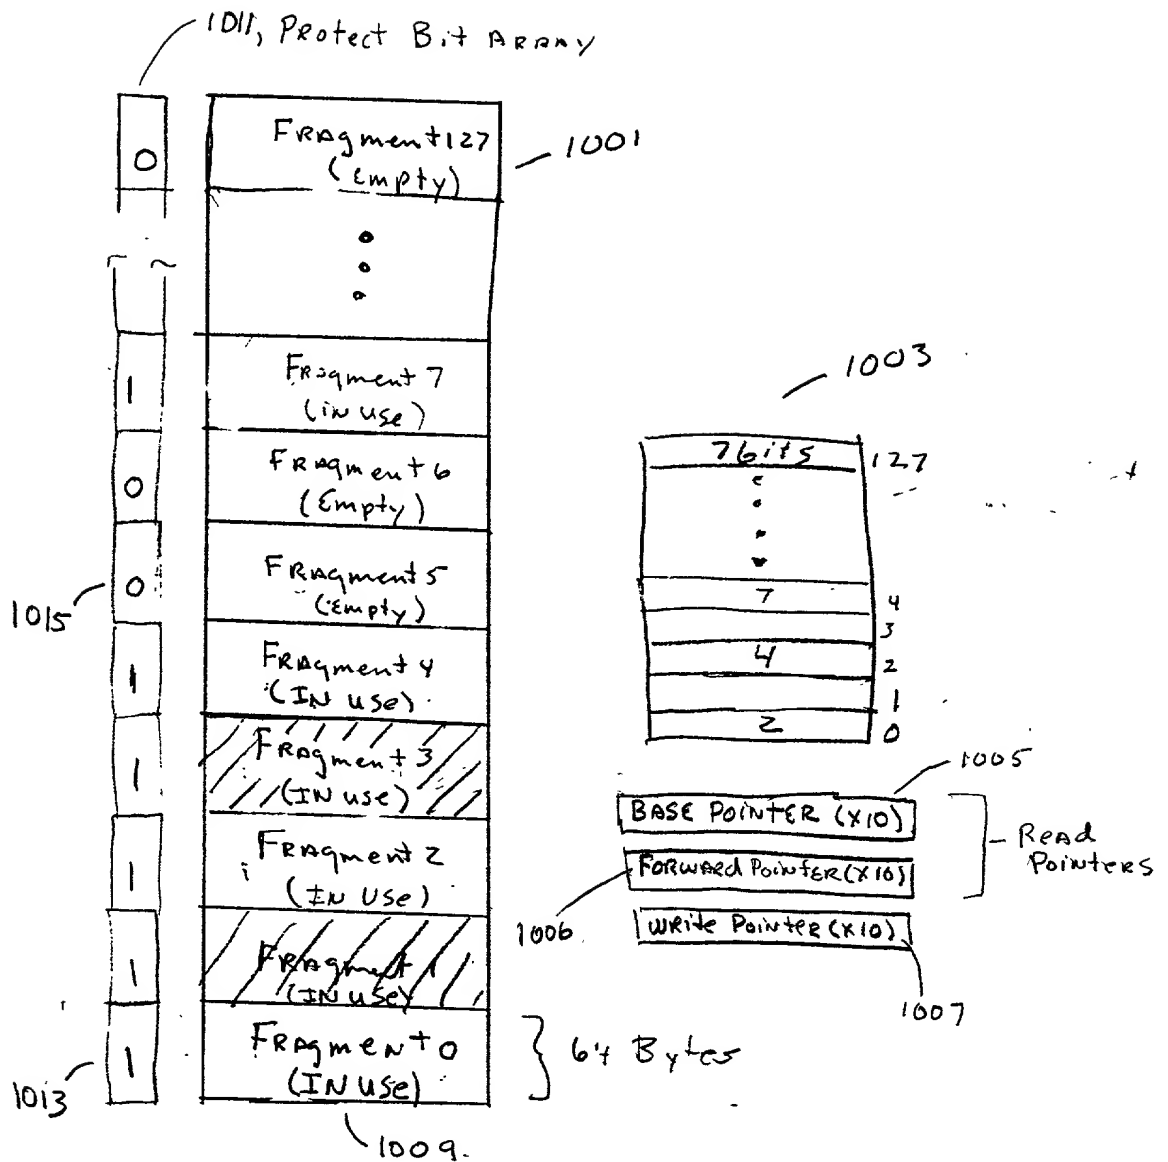 1011, Protect Bit Array
0
Fragment 127
(Empty)
1001
1
Fragment 7
(in use)
0
Fragment 6
(Empty)
0
Fragment 5
(Empty)
1015
1
Fragment 4
(IN use)
1
Fragment 3
(IN use)
1
Fragment 2
(IN use)
1
Fragment 1
(IN use)
1
Fragment 0
(IN use)
1013
64 Bytes
1009.
1003
7 bits
127
7
4
3
4
2
1
2
0
1005
BASE POINTER (X10)
Forward Pointer (X10)
Read
Pointers
1006
Write Pointer (X10)
1007